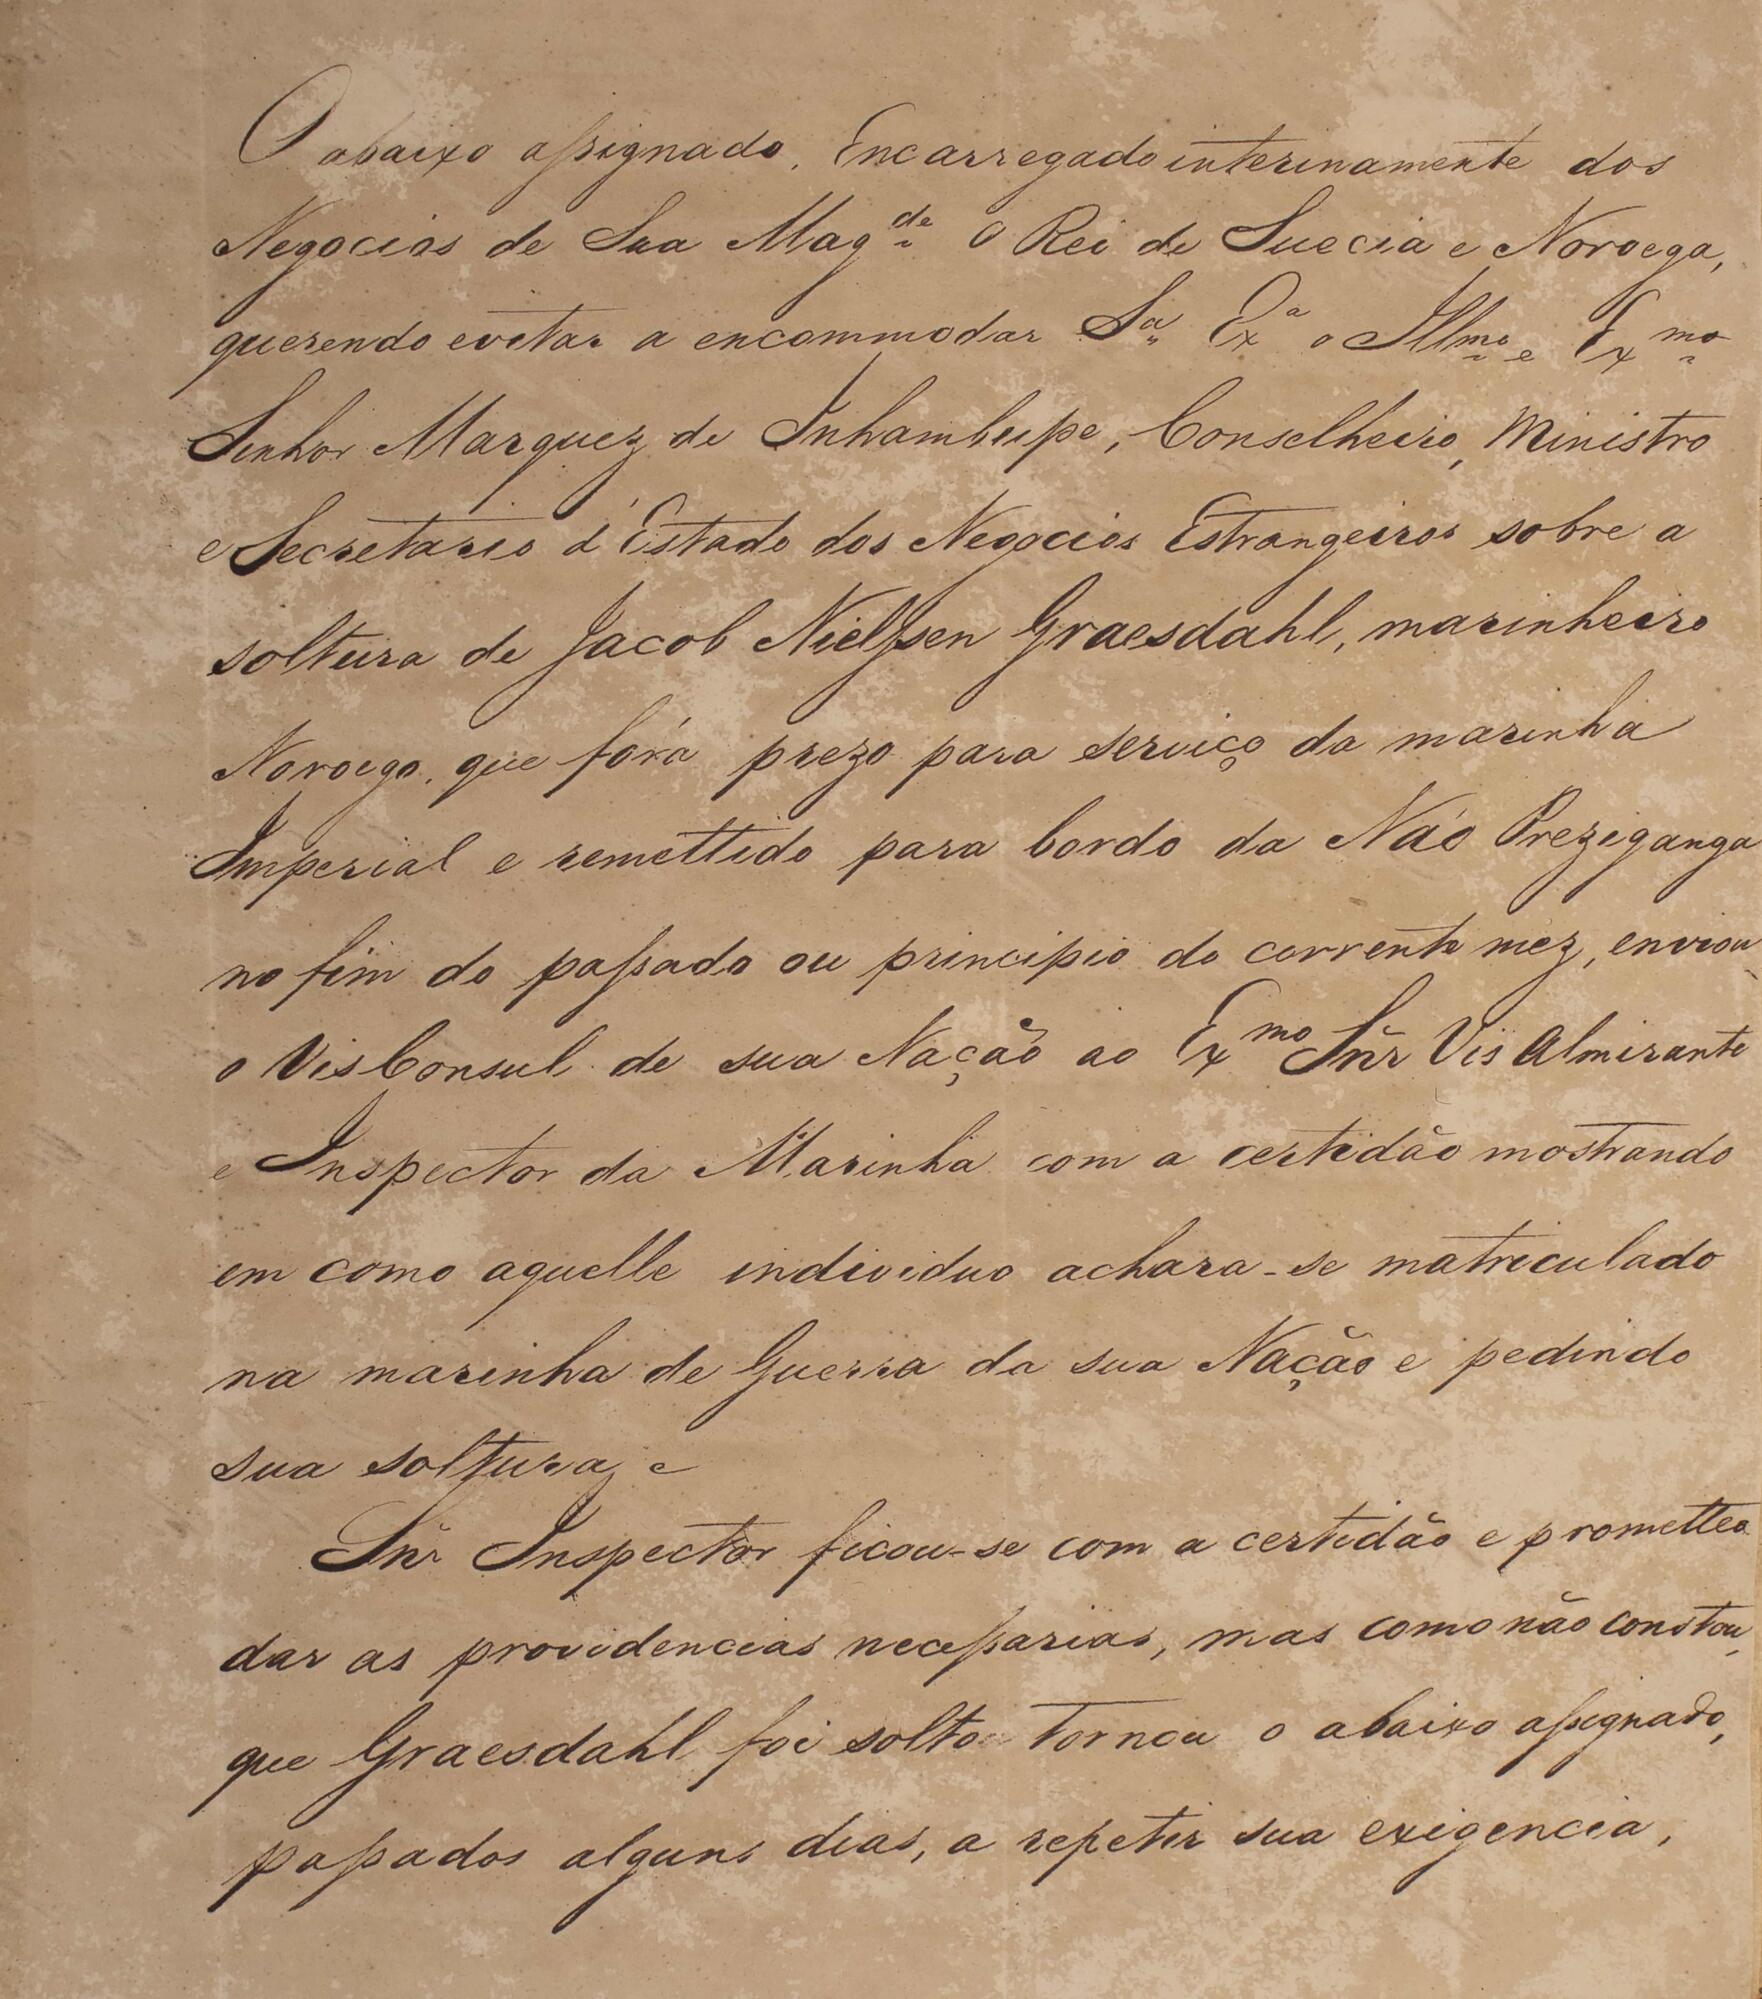 O abaixo assignado, Encarregado interinamente dos
Negocios de Sua Mag.de O Rei de Suecia e Noroega,
querendo evitar a encommodar S.a Ex.a o Illmo e Exmo
Senhor Marquez de Inhambupe, Conselheiro, Ministro
e Secretario d'Estado dos Negocios Estrangeiros sobre a
soltura de Jacob Nielssen Graesdahl, marinheiro
Noroego, que forá prezo para serviço da marinha
Imperial e remettido para bordo da Náo Preziganga
no fim do passado ou principio do corrente mez, enviou
o VisConsul de sua Nação ao Exmo Sñr Vis Almirante
e Inspector da Marinha com a certidão mostrando
em como aquelle individuo achara-se matriculado
na marinha de Guerra da sua Nação e pedindo
sua soltura, e
Sñr Inspector ficou-se com a certidão e prometteo
dar as providencias necessarias, mas como não constou,
que Graesdahl foi solto tornou o abaixo assignado,
passados alguns dias, a repetir sua exigencia,